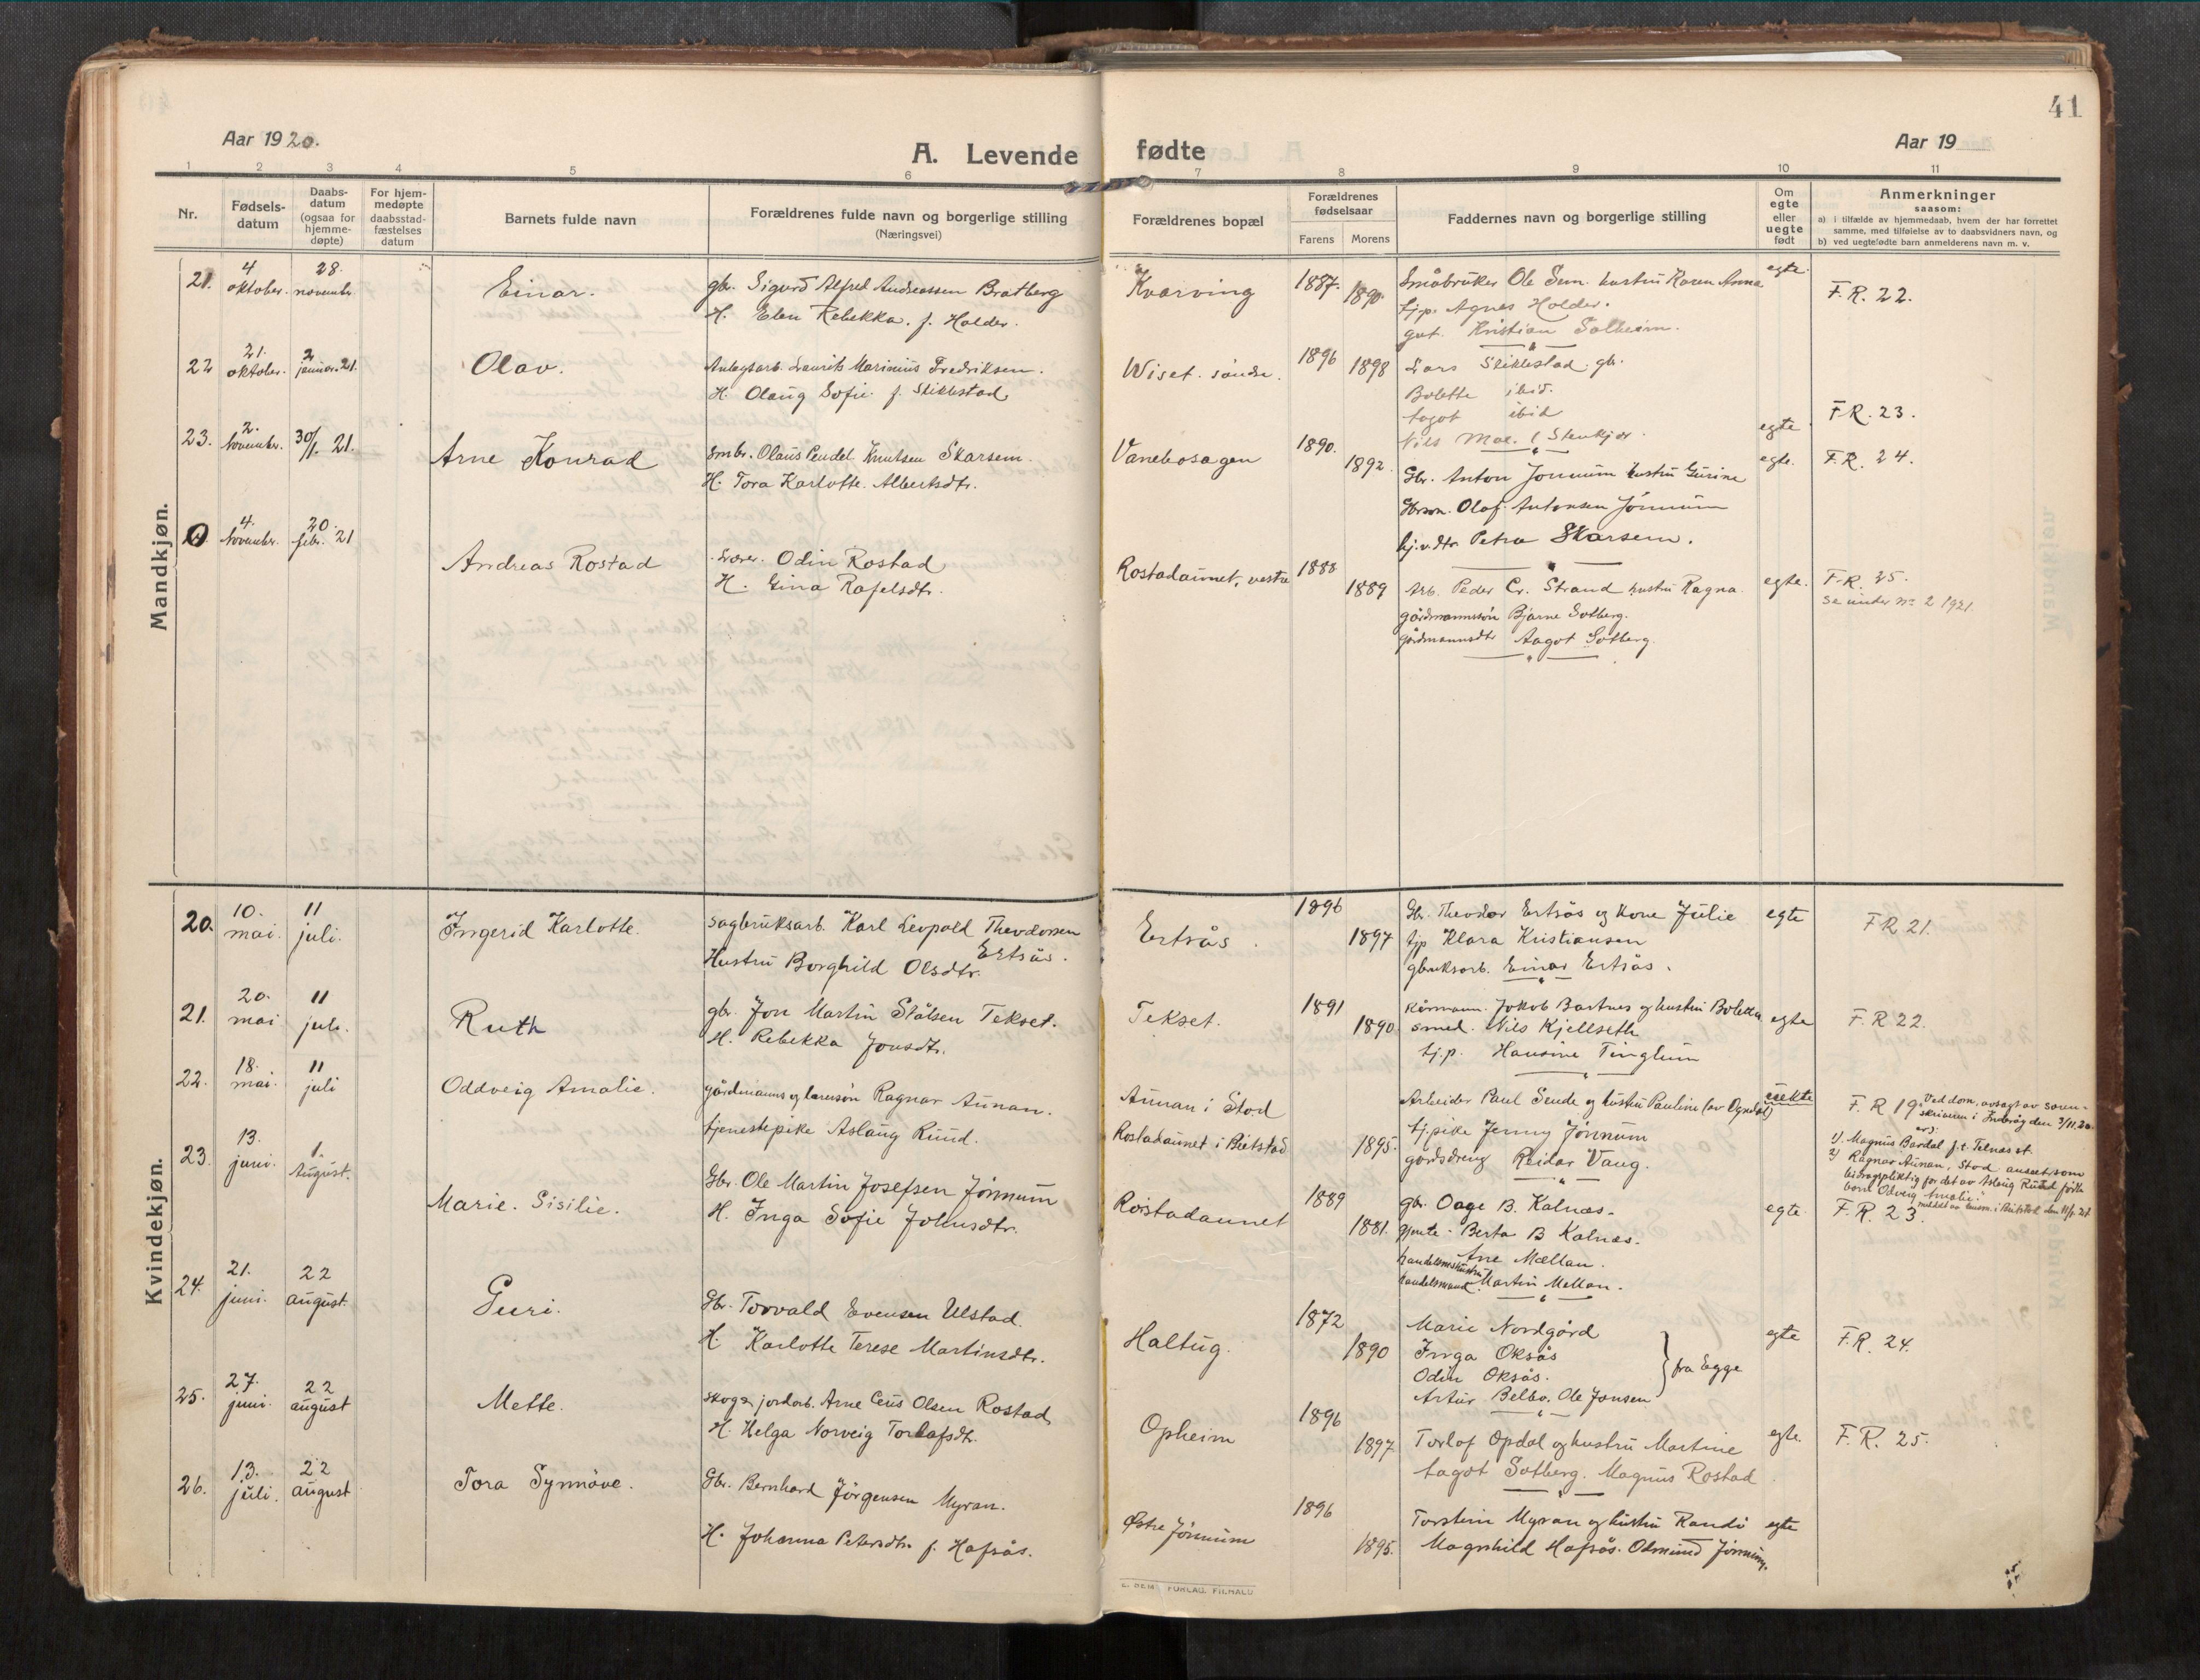 41
Aar 1920.
A. Levende fødte
Aar 19
1 2 3 4 5 6 7 8 9 10 11
Nr.
Fødsels-datum
Daabs-datum (ogsaa for hjemme-døpte)
For hjem-medøpte daabsstad-fæstelses datum
Barnets fulde navn
Forældrenes fulde navn og borgerlige stilling
(Næringsvei)
Forældrenes bopæl
Forældrenes fødselsaar
Farens Morens
Faddernes navn og borgerlige stilling
Om egte eller uegte født
Anmerkninger
saasom:
a) i tilfælde av hjemmedaab, hvem der har forrettet
samme, med tilføielse av to daabsvidners navn, og
b) ved uegtefødte barn anmelderens navn m. v.
Mandkjøn.
21. 4 oktober. 28. november
Einar.
gbr. Sigurd Alfred Andreassen Bratberg
H. Elen Rebekka. f. Holder.
Kvarving
1887. 1890.
Småbruker Ole Sem. hustru Karen Anna
tjp. Agnes Holder.
gut. Kristian Solheim.
egte.
F.R. 22.
22 21. oktober. 2 januar. 21.
Olav.
Anlegsarb. Laurits Marinius Fredriksen.
H. Olaug Sofie. f. Stiklestad
Wiset. søndre.
1896 1898
Lars Stiklestad. gb.
Bolette ibid.
Aagot ibid
Nils Moe. (Stenkjær.
egte.
F.R. 23.
23. 2. November. 30/1. 21.
Arne Konrad
Smbr. Olaus Pendel Knutsen Skarsem.
H. Tora Karlotte. Albertsdtr.
Vanebosagen
1890. 1892.
Gbr. Anton Jønnum hustru Gurine
Gbrsøn. Olaf Antonsen Jønnum
hj.v.dtr. Petra Skarsem.
egte.
F.R. 24.
4. November. 20. febr. 21
Andreas Rostad
Lærer. Odin Rostad
H. Gina Rafelsdtr.
Rostadaunet, vestre
1888 1889
Arb. Peder Cr. Strand hustru Ragna.
gårdmannssøn Bjarne Sotberg.
gårdmannsdtr Aagot Sotberg.
egte.
F.R. 25.
Se under no 2 1921.
Kvindekjøn.
20. 10. mai. 11 juli.
Ingerid Karlotte.
sagbruksarb. Karl Leopold Theodorsen
Ertsås.
Hustru Borghild Olsdtr.
Ertsås.
1896 1897
Gbr. Theodor Ertsås og Kone Julie
tjp Klara Kristiansen
gbruksarb. Einar Ertsås.
egte
F.R 21.
21. 20. mai 11 juli.
Ruth
gbr. Jon Martin Stålsen Tekset.
H. Rebekka Jonsdtr.
Tekset.
1891 1890
Kårmann. Jokob Bartnes og hustru Boletta
smed. Nils Kjellseth
tj.p. Hansine Tinglum
egte
F.R 22.
22. 18. mai. 11 juli
Oddveig Amalie.
gårdmanns og lærersøn Ragnar Aunan.
tjenestepike Aslaug Ruud.
Aunan i Stod
Rostadaunet i Beitstad
1895.
Arbeider Paul Sende og hustru Pauline (av Ogndal)
tj.pike Jenny Jønnum
gårdsdreng Reidar Vang.
uekte
F. R 19. Ved dom, avsagt av soren-
skriveren i Inderøy den 3/11.20
er:
1). Magnus Bardal p.t. Telnes st.
2) Ragnar Aunan, Stod anseet som
bidragspliktig for det av Aslaug Ruud fødte
barn Odveig Amalie."
23. 13. juni. 1. August.
Marie. Sisilie.
Gbr. Ole Martin Josefsen Jønnum
H. Inga Sofie Johnsdtr.
Rostadaunet
1889 1881.
gbr. Oage B. Kalnæs.
gjente - Berta B Kalnæs.
handelsmshustru. Ane Mællan.
handelsmand. Martin Mellan.
egte.
F.R. 23.
24. 21. juni. 22 august.
Guri.
Gbr. Torvald Evensen Ulstad.
H. Karlotte Terese Martinsdtr.
Haltug.
1872 1890
Marie Nordgård
Inga Oksås
Odin Oksås.
Artur Belbo. Ole Jonsen
fra Egge
egte
F.R. 24.
25. 27. juni. 22 august
Mette.
Skog & jordarb. Arne Ceus Olsen Rostad
H. Helga Norveig Torlafsdtr.
Opheim
1896 1897
Torlof Opdal og hustru Martine
Aagot Sotberg. Magnus Rostad
egte.
F.R. 25.
26. 13. juli. 22 august
Tora Synnøve.
Gbr. Bernhard Jørgensen Myran.
H. Johanna Petersdtr f. Hafsås.
Østre Jønnum
1896 1895.
Torstein Myran og hustru Randi
Magnhild Hafsås. Odmund Jønnum.
egte
FORLAG.